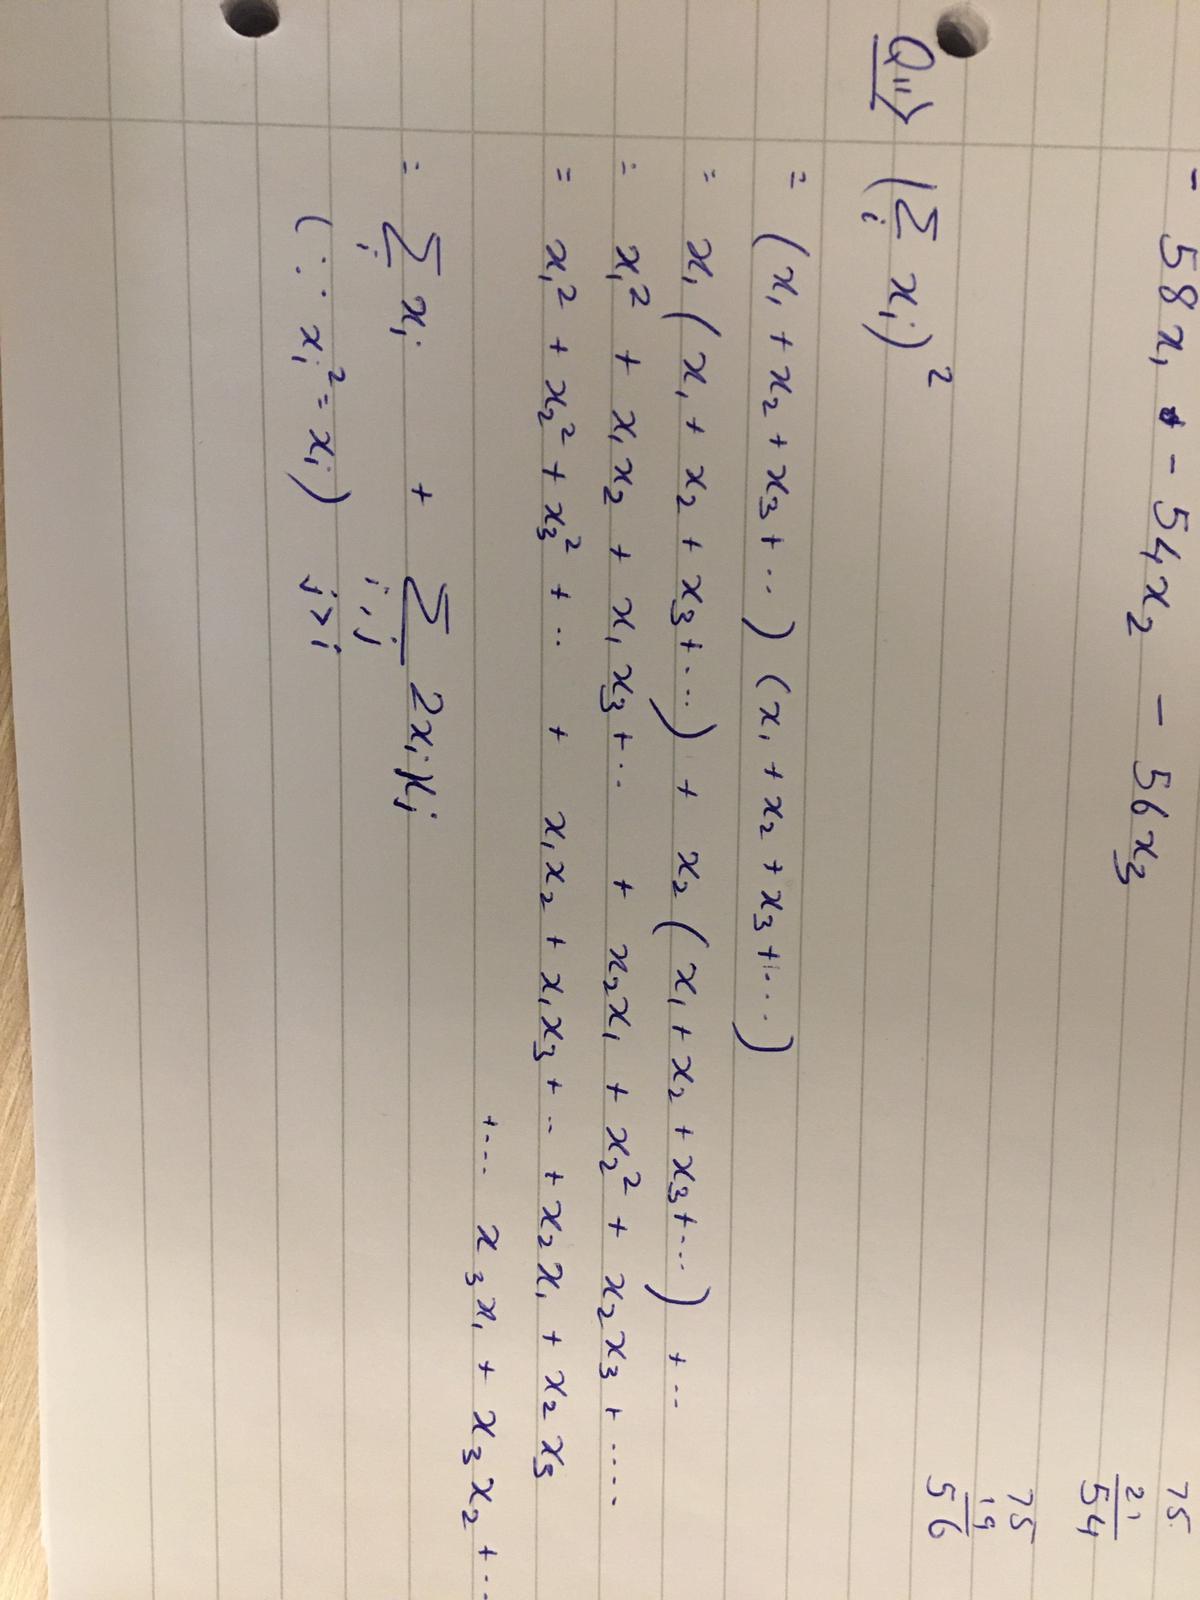 - 58x₁ - 54x₂ - 56x₃
75
21
54
75
19
56
Q11> (∑ᵢ xᵢ)²
= (x₁ + x₂ + x₃ + ..) (x₁ + x₂ + x₃ + ...)
= x₁ (x₁ + x₂ + x₃ + ...) + x₂ (x₁ + x₂ + x₃ + ...) + ..
= x₁² + x₁x₂ + x₁x₃ + ... + x₂x₁ + x₂² + x₂x₃ + ....
= x₁² + x₂² + x₃² + .. + x₁x₂ + x₁x₃ + .. + x₂x₁ + x₂x₃
+ ... x₃x₁ + x₃x₂ + ..
= ∑ᵢ xᵢ + ∑ᵢ,ⱼ 2xᵢxⱼ
(∵ xᵢ² = xᵢ) j>i